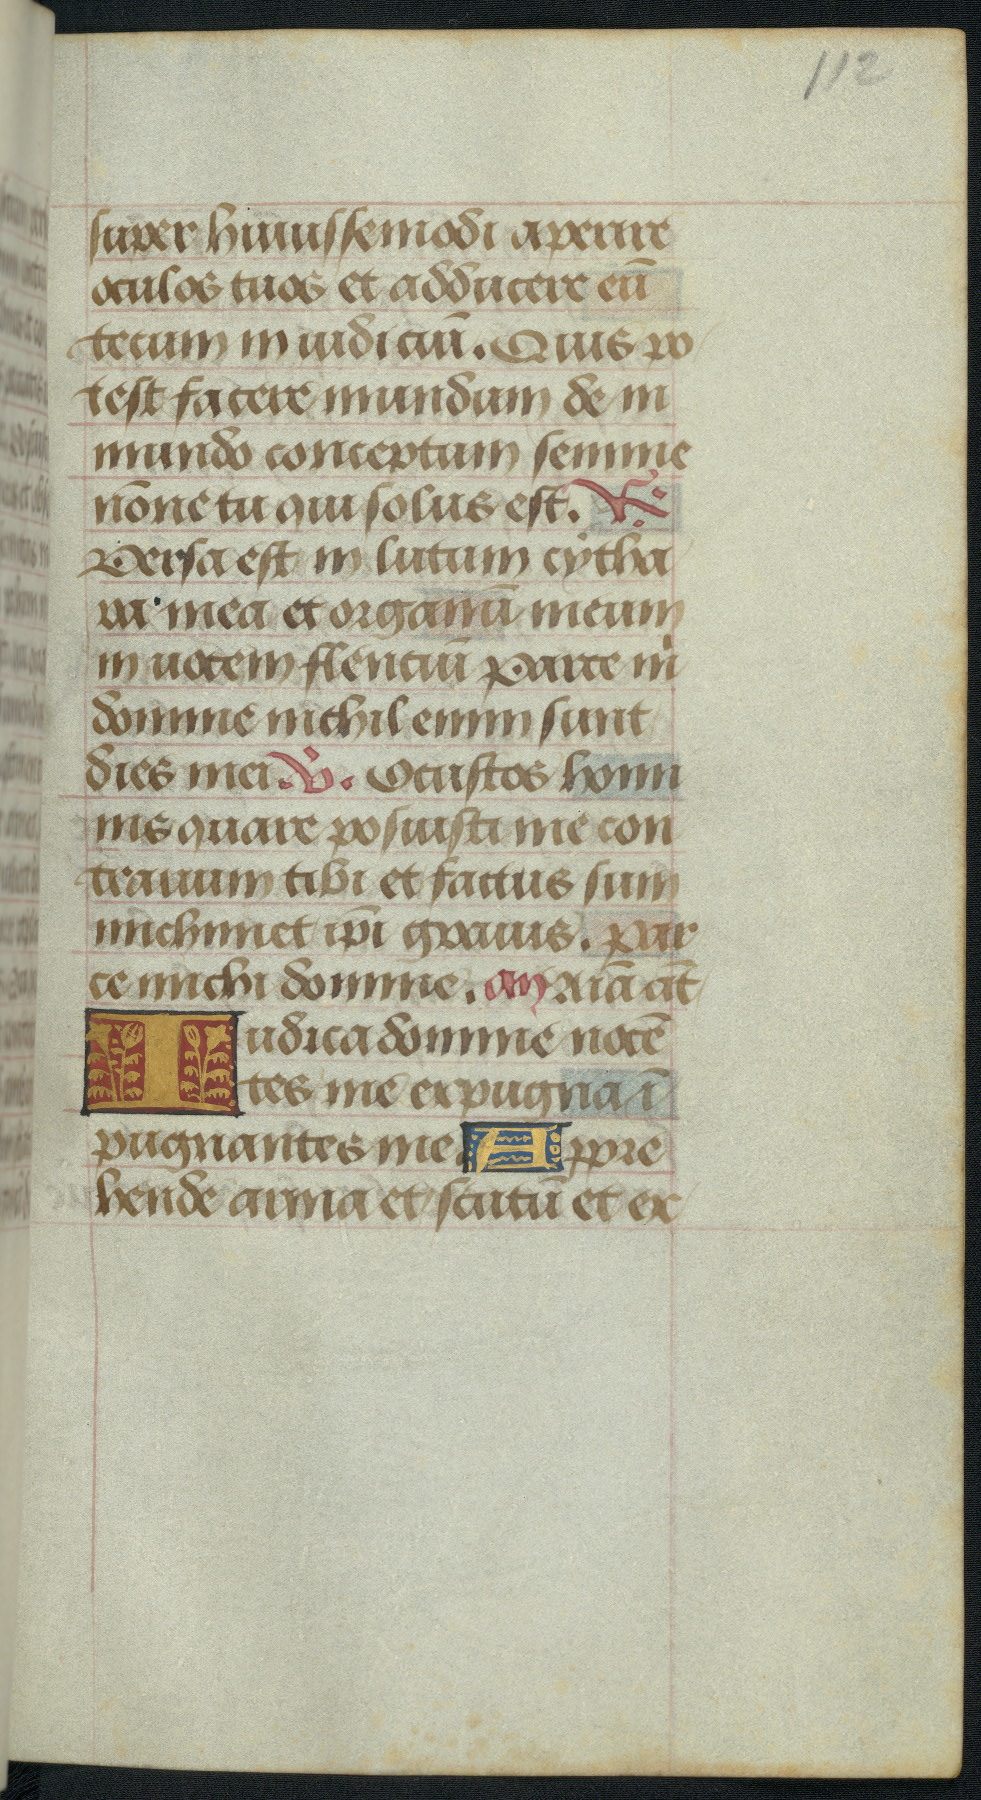 112
super huiussemodi aperire
oculos tuos et adducere eū
tecum in iudiciū. Quis po
test facere mundum de in
mundo conceptum semine
nōne tu qui solus est. R̃.
Versa est in lutum cytha
ra mea et organū meum
in uocem flenciū Parce m̄
domine nichil enim sunt
dies mei. V. O custos homi
nis quare posuisti me con
trarium tibi et factus sum
michimet ip̄i grauis. Par
ce michi domine. an Aīa āt
Iudica domine nocē
tes me expugna ī
pugnantes me Appre
hende arma et scutū et ex